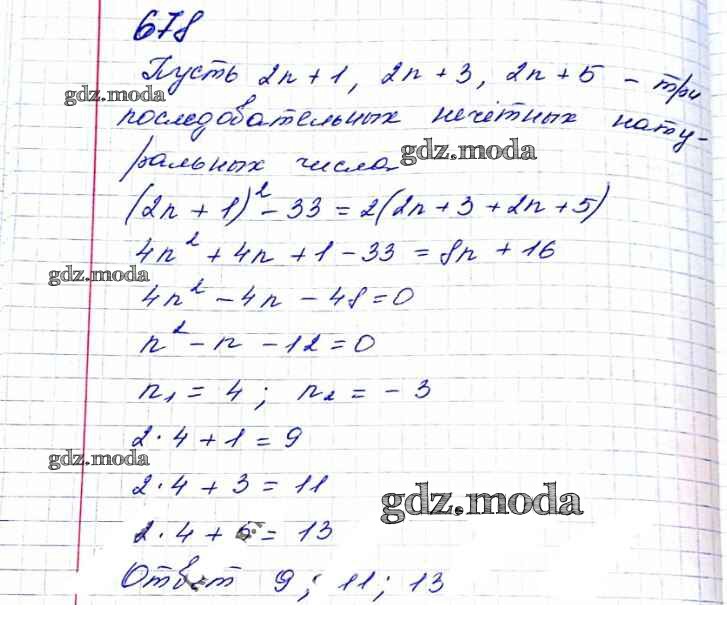 678
Пусть 2n+1, 2n+3, 2n+5 – три
gdz.moda
последовательных нечётных нату-
ральных числа
gdz.moda
(2n+1)²-33=2(2n+3+2n+5)
4n²+4n+1-33=8n+16
gdz.moda
4n²-4n-48=0
n²-n-12=0
n₁=4; n₂=-3
2·4+1=9
gdz.moda
2·4+3=11
gdz.moda
2·4+5=13
Ответ 9; 11; 13